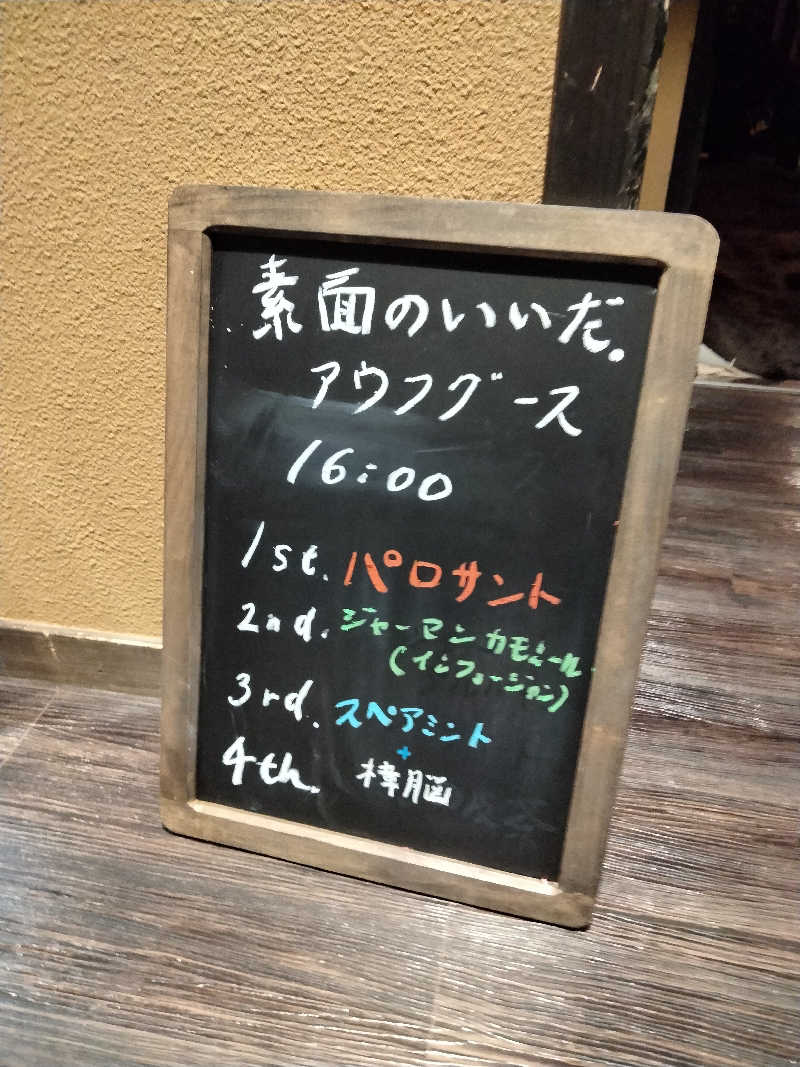 素面のいいだ。
アウフグース
16:00
1st. パロサント
2nd. ジャーマンカモミール
(インフュージョン)
3rd. スペアミント
+
4th. 樟脳